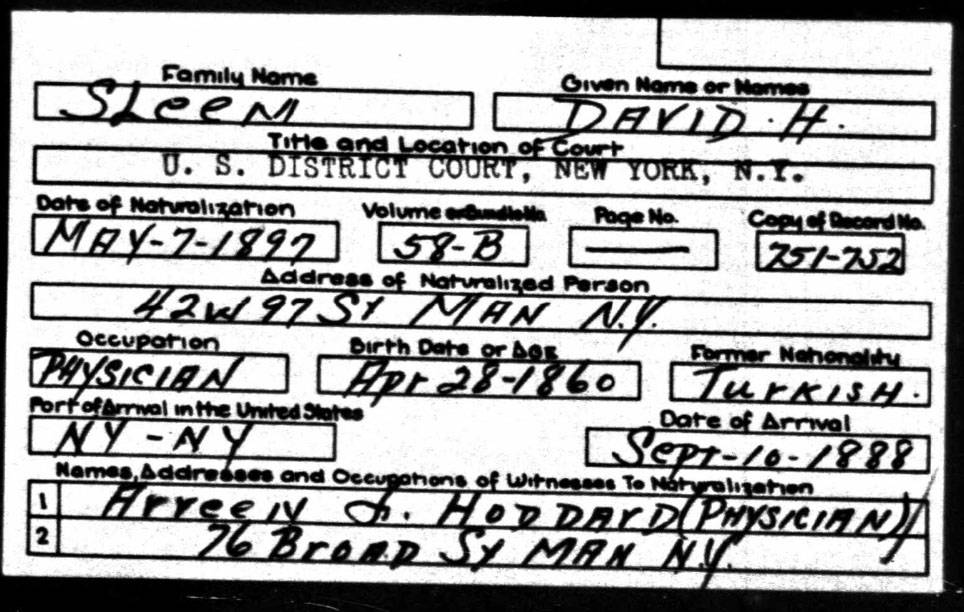 Family Name Given Name or Names
SLeeM DAVID. H.
Title and Location of Court
U. S. DISTRICT COURT, NEW YORK, N.Y.
Date of Naturalization Volume or Bundle No. Page No. Copy of Record No.
MAY-7-1897 58-B — 751-752
Address of Naturalized Person
42 W 97 St MAN N.Y.
Occupation Birth Date or Age Former Nationality
PHYSICIAN Apr 28-1860 TurKISH.
Port of Arrival in the United States Date of Arrival
NY - NY Sept-10-1888
Names, Addresses and Occupations of Witnesses To Naturalization
1 HODDArD (PHYSICIAN)
2 76 BroAD St MAN N.Y.